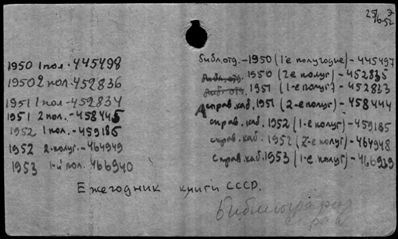 25/IV 52
1950 1 пол. - 445498
1950 2 пол. - 452836
1951 1 пол. - 452834
1951 2 пол. - 458445
1952 1 пол. - 459186
1952 2-полуг. - 464949
1953 1-й пол. 466940
библ.отд. - 1950 (1-е полугодие) - 445497
библ.отд. 1950 (2-е полуг) - 452835
библ отд. 1951 (1-е полуг) - 452833
справ. каб. 1951 (2-е полуг) - 458444
справ. каб. 1952 (1-е полуг) - 459185
справ. каб. 1952 (2-е полуг) - 464948
справ. каб. 1953 (1-е полуг) - 466939
Ежегодник книги СССР.
Библиография